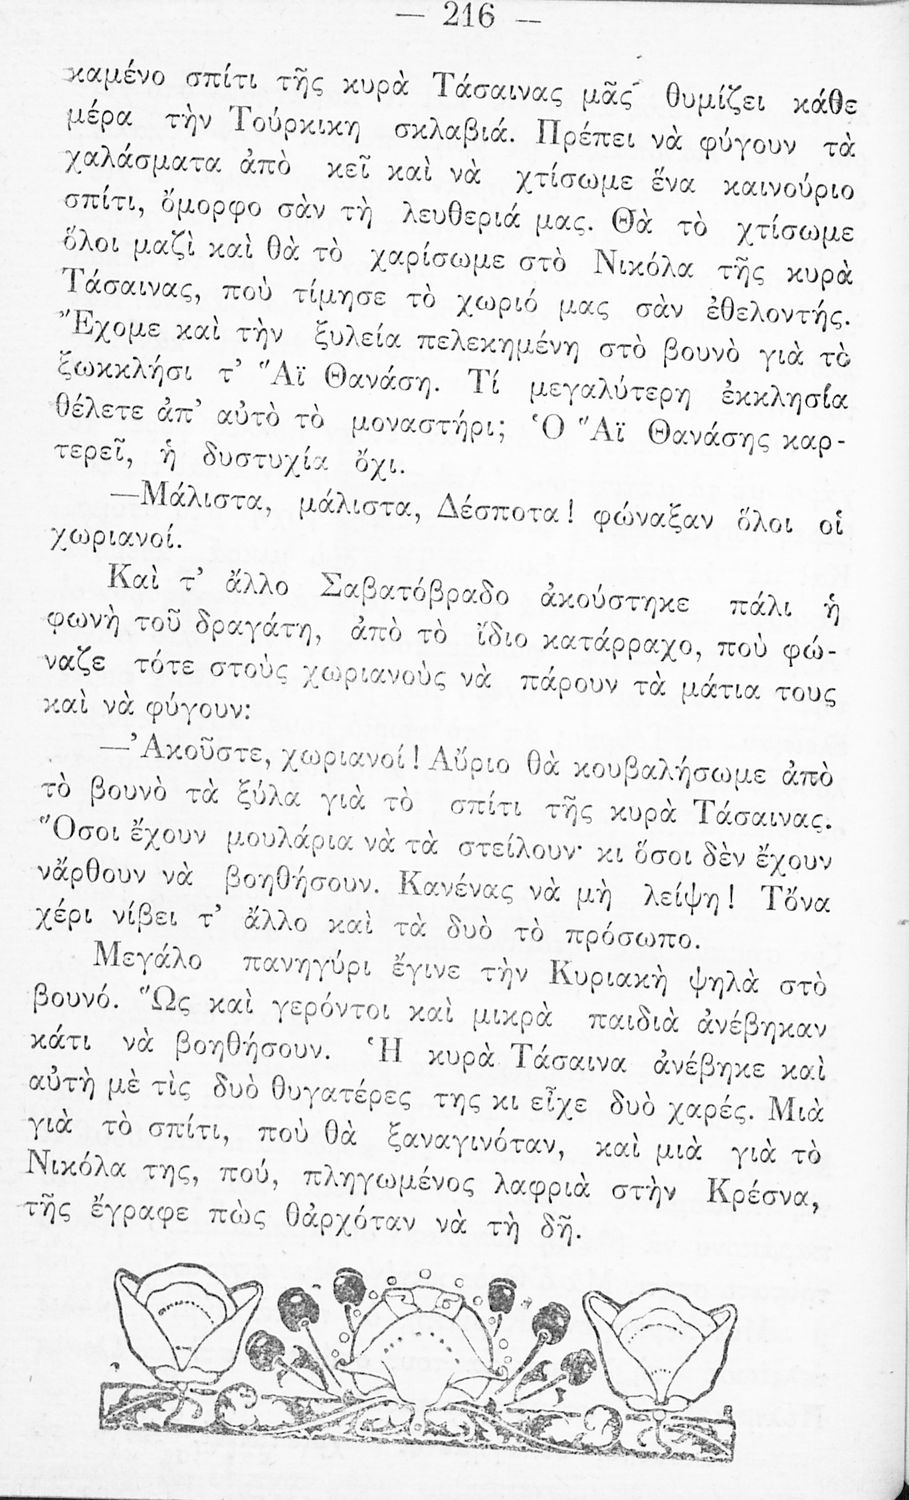 — 216 —
καμένο σπίτι τῆς κυρὰ Τάσαινας μᾶς θυμίζει κάθε
μέρα τὴν Τούρκικη σκλαβιά. Πρέπει νὰ φύγουν τὰ
χαλάσματα ἀπὸ κεῖ καὶ νὰ χτίσωμε ἕνα καινούριο
σπίτι, ὄμορφο σὰν τὴ λευθεριά μας. Θὰ τὸ χτίσωμε
ὅλοι μαζὶ καὶ θὰ τὸ χαρίσωμε στὸ Νικόλα τῆς κυρὰ
Τάσαινας, ποὺ τίμησε τὸ χωριό μας σὰν ἐθελοντής.
Ἔχομε καὶ τὴν ξυλεία πελεκημένη στὸ βουνὸ γιὰ τὸ
ξωκκλήσι τ’ Ἅϊ Θανάση. Τί μεγαλύτερη ἐκκλησία
θέλετε ἀπ’ αὐτὸ τὸ μοναστήρι; Ὁ Ἅϊ Θανάσης καρ-
τερεῖ, ἡ δυστυχία ὄχι.
—Μάλιστα, μάλιστα, Δέσποτα! φώναξαν ὅλοι οἱ
χωριανοί.
Καὶ τ’ ἄλλο Σαβατόβραδο ἀκούστηκε πάλι ἡ
φωνὴ τοῦ δραγάτη, ἀπὸ τὸ ἴδιο κατάρραχο, ποὺ φώ-
ναζε τότε στοὺς χωριανοὺς νὰ πάρουν τὰ μάτια τους
καὶ νὰ φύγουν:
—Ἀκοῦστε, χωριανοί! Αὔριο θὰ κουβαλήσωμε ἀπὸ
τὸ βουνὸ τὰ ξύλα γιὰ τὸ σπίτι τῆς κυρὰ Τάσαινας.
Ὅσοι ἔχουν μουλάρια νὰ τὰ στείλουν· κι ὅσοι δὲν ἔχουν
νἄρθουν νὰ βοηθήσουν. Κανένας νὰ μὴ λείψη! Τὄνα
χέρι νίβει τ’ ἄλλο καὶ τὰ δυὸ τὸ πρόσωπο.
Μεγάλο πανηγύρι ἔγινε τὴν Κυριακὴ ψηλὰ στὸ
βουνό. Ὥς καὶ γερόντοι καὶ μικρὰ παιδιὰ ἀνέβηκαν
κάτι νὰ βοηθήσουν. Ἡ κυρὰ Τάσαινα ἀνέβηκε καὶ
αὐτὴ μὲ τὶς δυὸ θυγατέρες της κι εἶχε δυὸ χαρές. Μιὰ
γιὰ τὸ σπίτι, ποὺ θὰ ξαναγινόταν, καὶ μιὰ γιὰ τὸ
Νικόλα της, πού, πληγωμένος λαφριὰ στὴν Κρέσνα,
τῆς ἔγραφε πὼς θἀρχόταν νὰ τὴ δῆ.